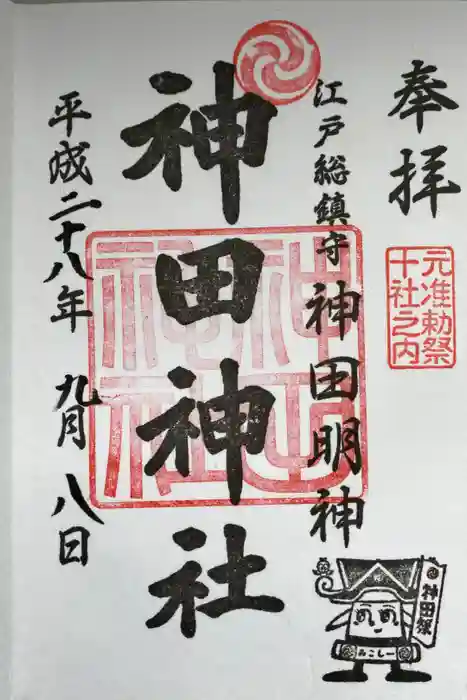 奉拝
元准勅祭
十社之内
江戸総鎮守 神田明神
神田神社
平成二十八年 九月 八日
神田祭
みこしー